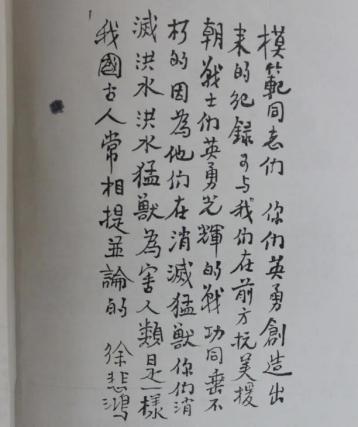 模範同志们 你们英勇創造出
来的纪録可与我们在前方抗美援
朝戰士们英勇光輝的戰功同垂不
朽的因為他们在消滅猛獸你们消
滅洪水洪水猛獸為害人類是一樣
我國古人常相提並論的 徐悲鴻